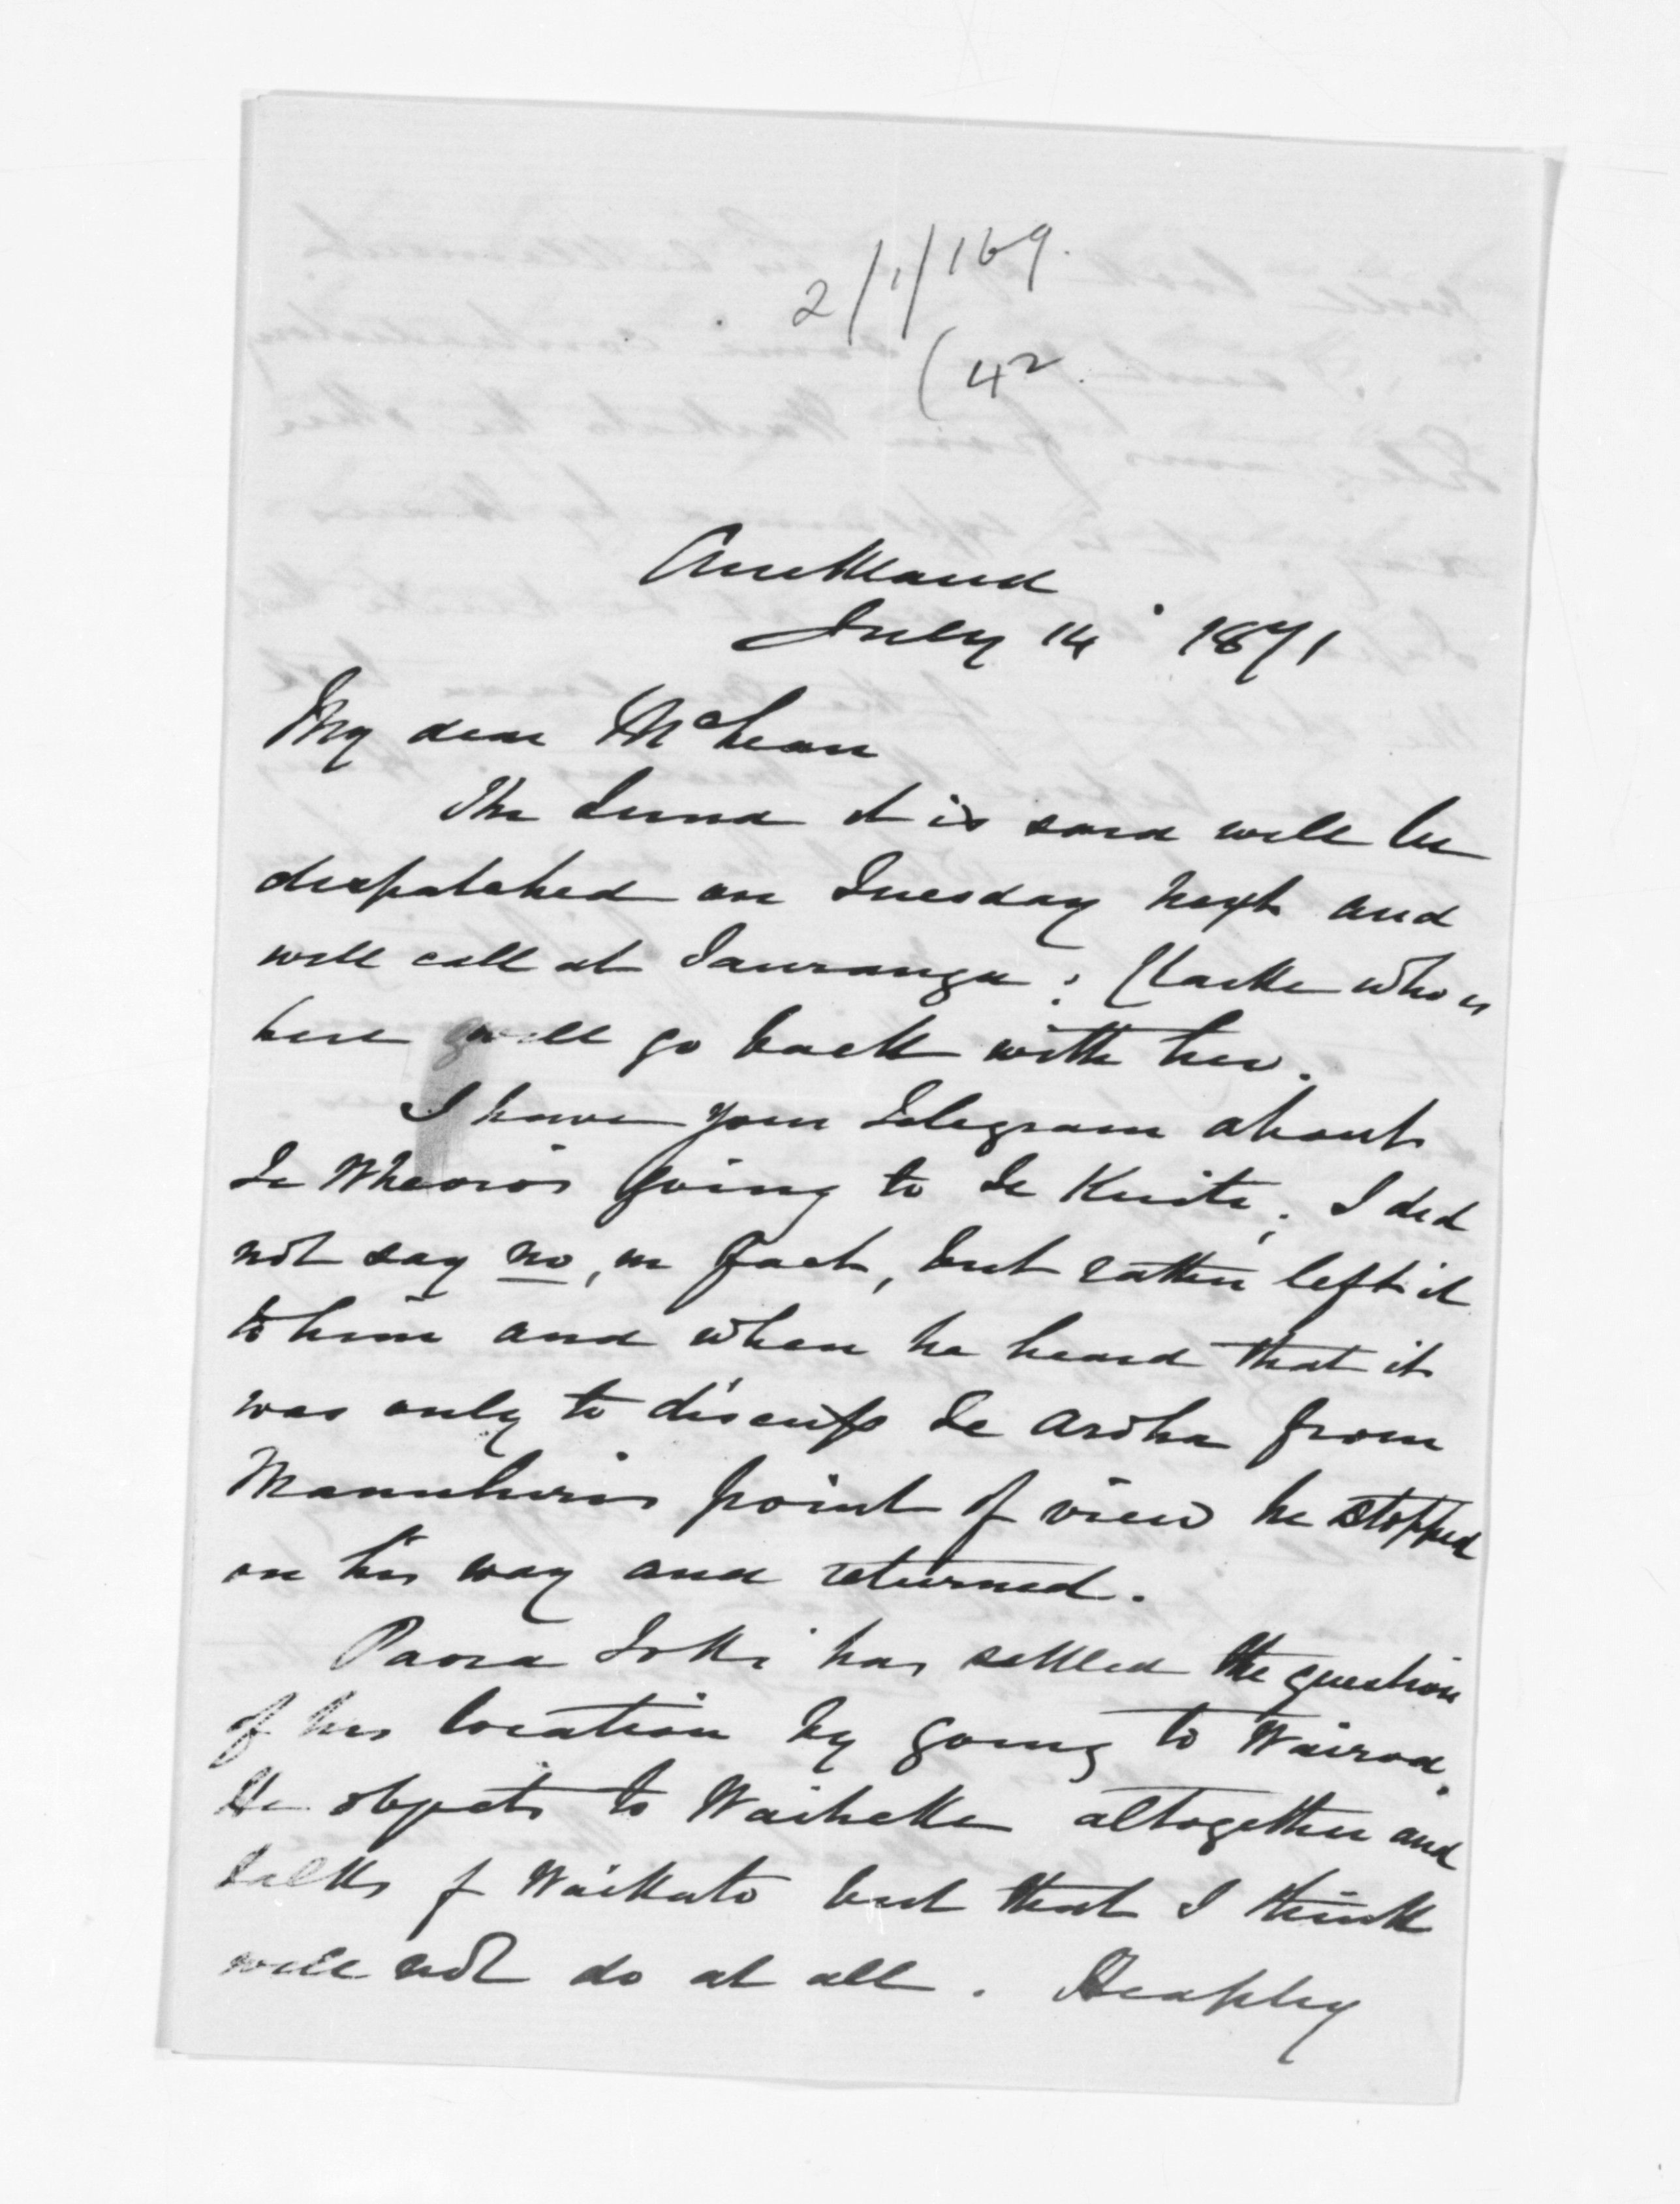 2/1/169.
(42.
Auckland
July 14 1871
My dear McLean
The Luna it is said will be
dispatched on Tuesday next and
will call at Tauranga: Clarke who is
here will go back with her.
I have your Telegram about
Te Wheoro's going to Te Kuiti; I did
not say no, in fact, but rather left it
to him and when he heard that it
was only to discuss Te Aroha from
Manuhiri's point of view he stopped
on his way and returned.
Paora Toki has settled the question
of his location by going to Wairoa.
He objects to Waiheke altogether and
talks of Waikato but that I think
will not do at all. Heaphy